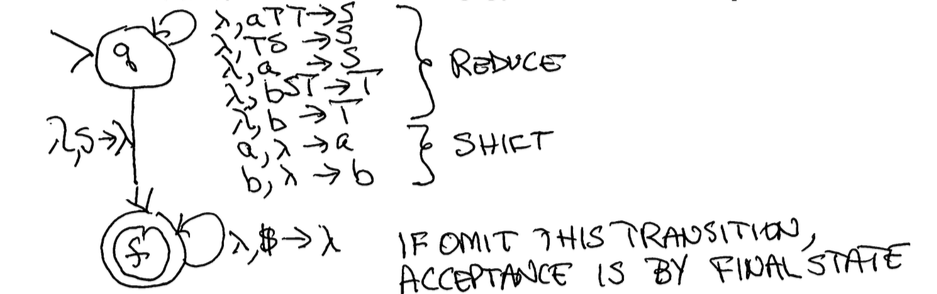 λ,aTT→S
λ,TS→S
λ,a→S
λ,bST→T
λ,b→T
REDUCE
a,λ→a
b,λ→b
SHIFT
q
λ,S→λ
f
λ,$→λ
IF OMIT THIS TRANSITION,
ACCEPTANCE IS BY FINAL STATE